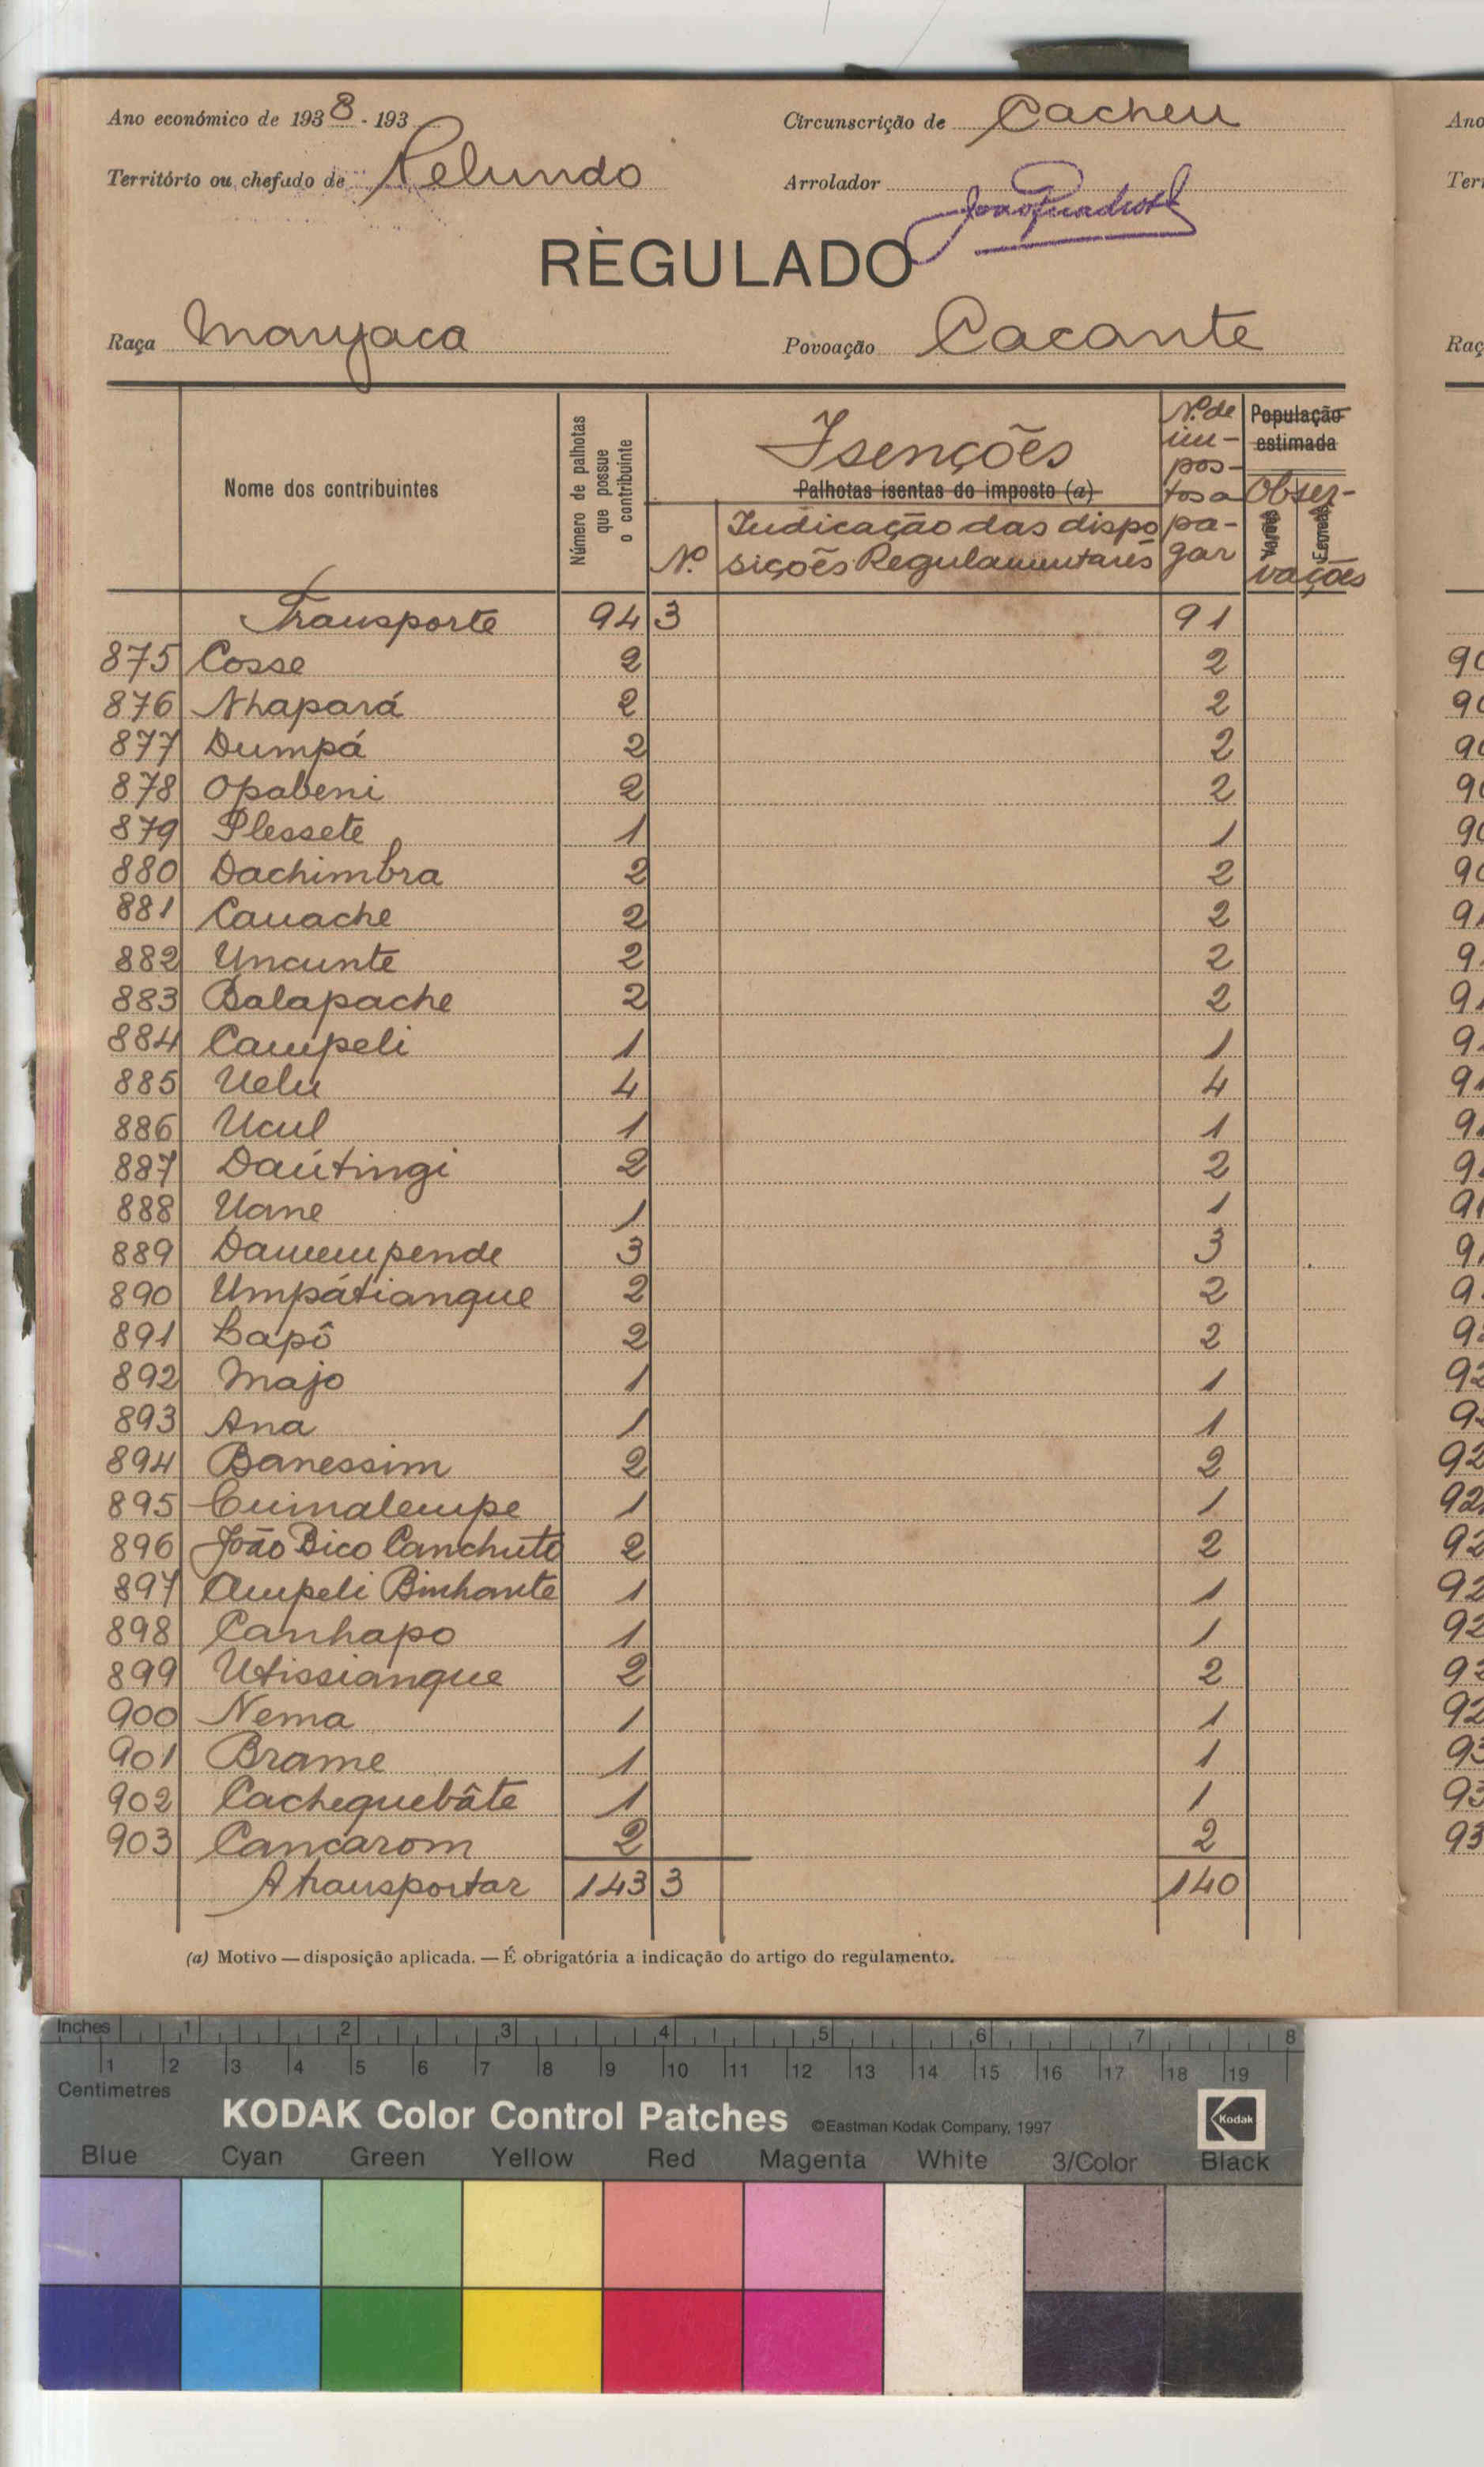 Ano económico de 1938-193
Circunscrição de Cacheu
Território ou chefado de Pelundo
Arrolador
RÈGULADO
Raça Manjaca
Povoação Cacante
Nome dos contribuintes
Número de palhotas que possue o contribuinte
Isenções
Palhotas isentas do imposto (a)
Nº
Indicação das disposições Regulamentares
Nº de impostos a pagar
População estimada
Observações
Varões
Femeas
Transporte 94 3 91
875 Cosse 2 2
876 Nhapará 2 2
877 Dumpá 2 2
878 Opabeni 2 2
879 Plessete 1 1
880 Dachimbra 2 2
881 Cauache 2 2
882 Uncunte 2 2
883 Balapache 2 2
884 Campeli 1 1
885 Uelu 4 4
886 Ucul 1 1
887 Daútingi 2 2
888 Uane 1 1
889 Damempende 3 3
890 Umpátiangue 2 2
891 Lapô 2 2
892 Majo 1 1
893 Ana 1 1
894 Banessim 2 2
895 Cuinalempe 1 1
896 João Bico Canchuto 2 2
897 Ampeli Binhante 1 1
898 Canhapo 1 1
899 Utissiangue 2 2
900 Nema 1 1
901 Brame 1 1
902 Cachequebâte 1 1
903 Cancarom 2 2
A transportar 143 3 140
(a) Motivo — disposição aplicada. — É obrigatória a indicação do artigo do regulamento.
Inches 1 2 3 4 5 6 7 8
1 2 3 4 5 6 7 8 9 10 11 12 13 14 15 16 17 18 19
Centimetres
KODAK Color Control Patches ©Eastman Kodak Company, 1997 Kodak
Blue Cyan Green Yellow Red Magenta White 3/Color Black